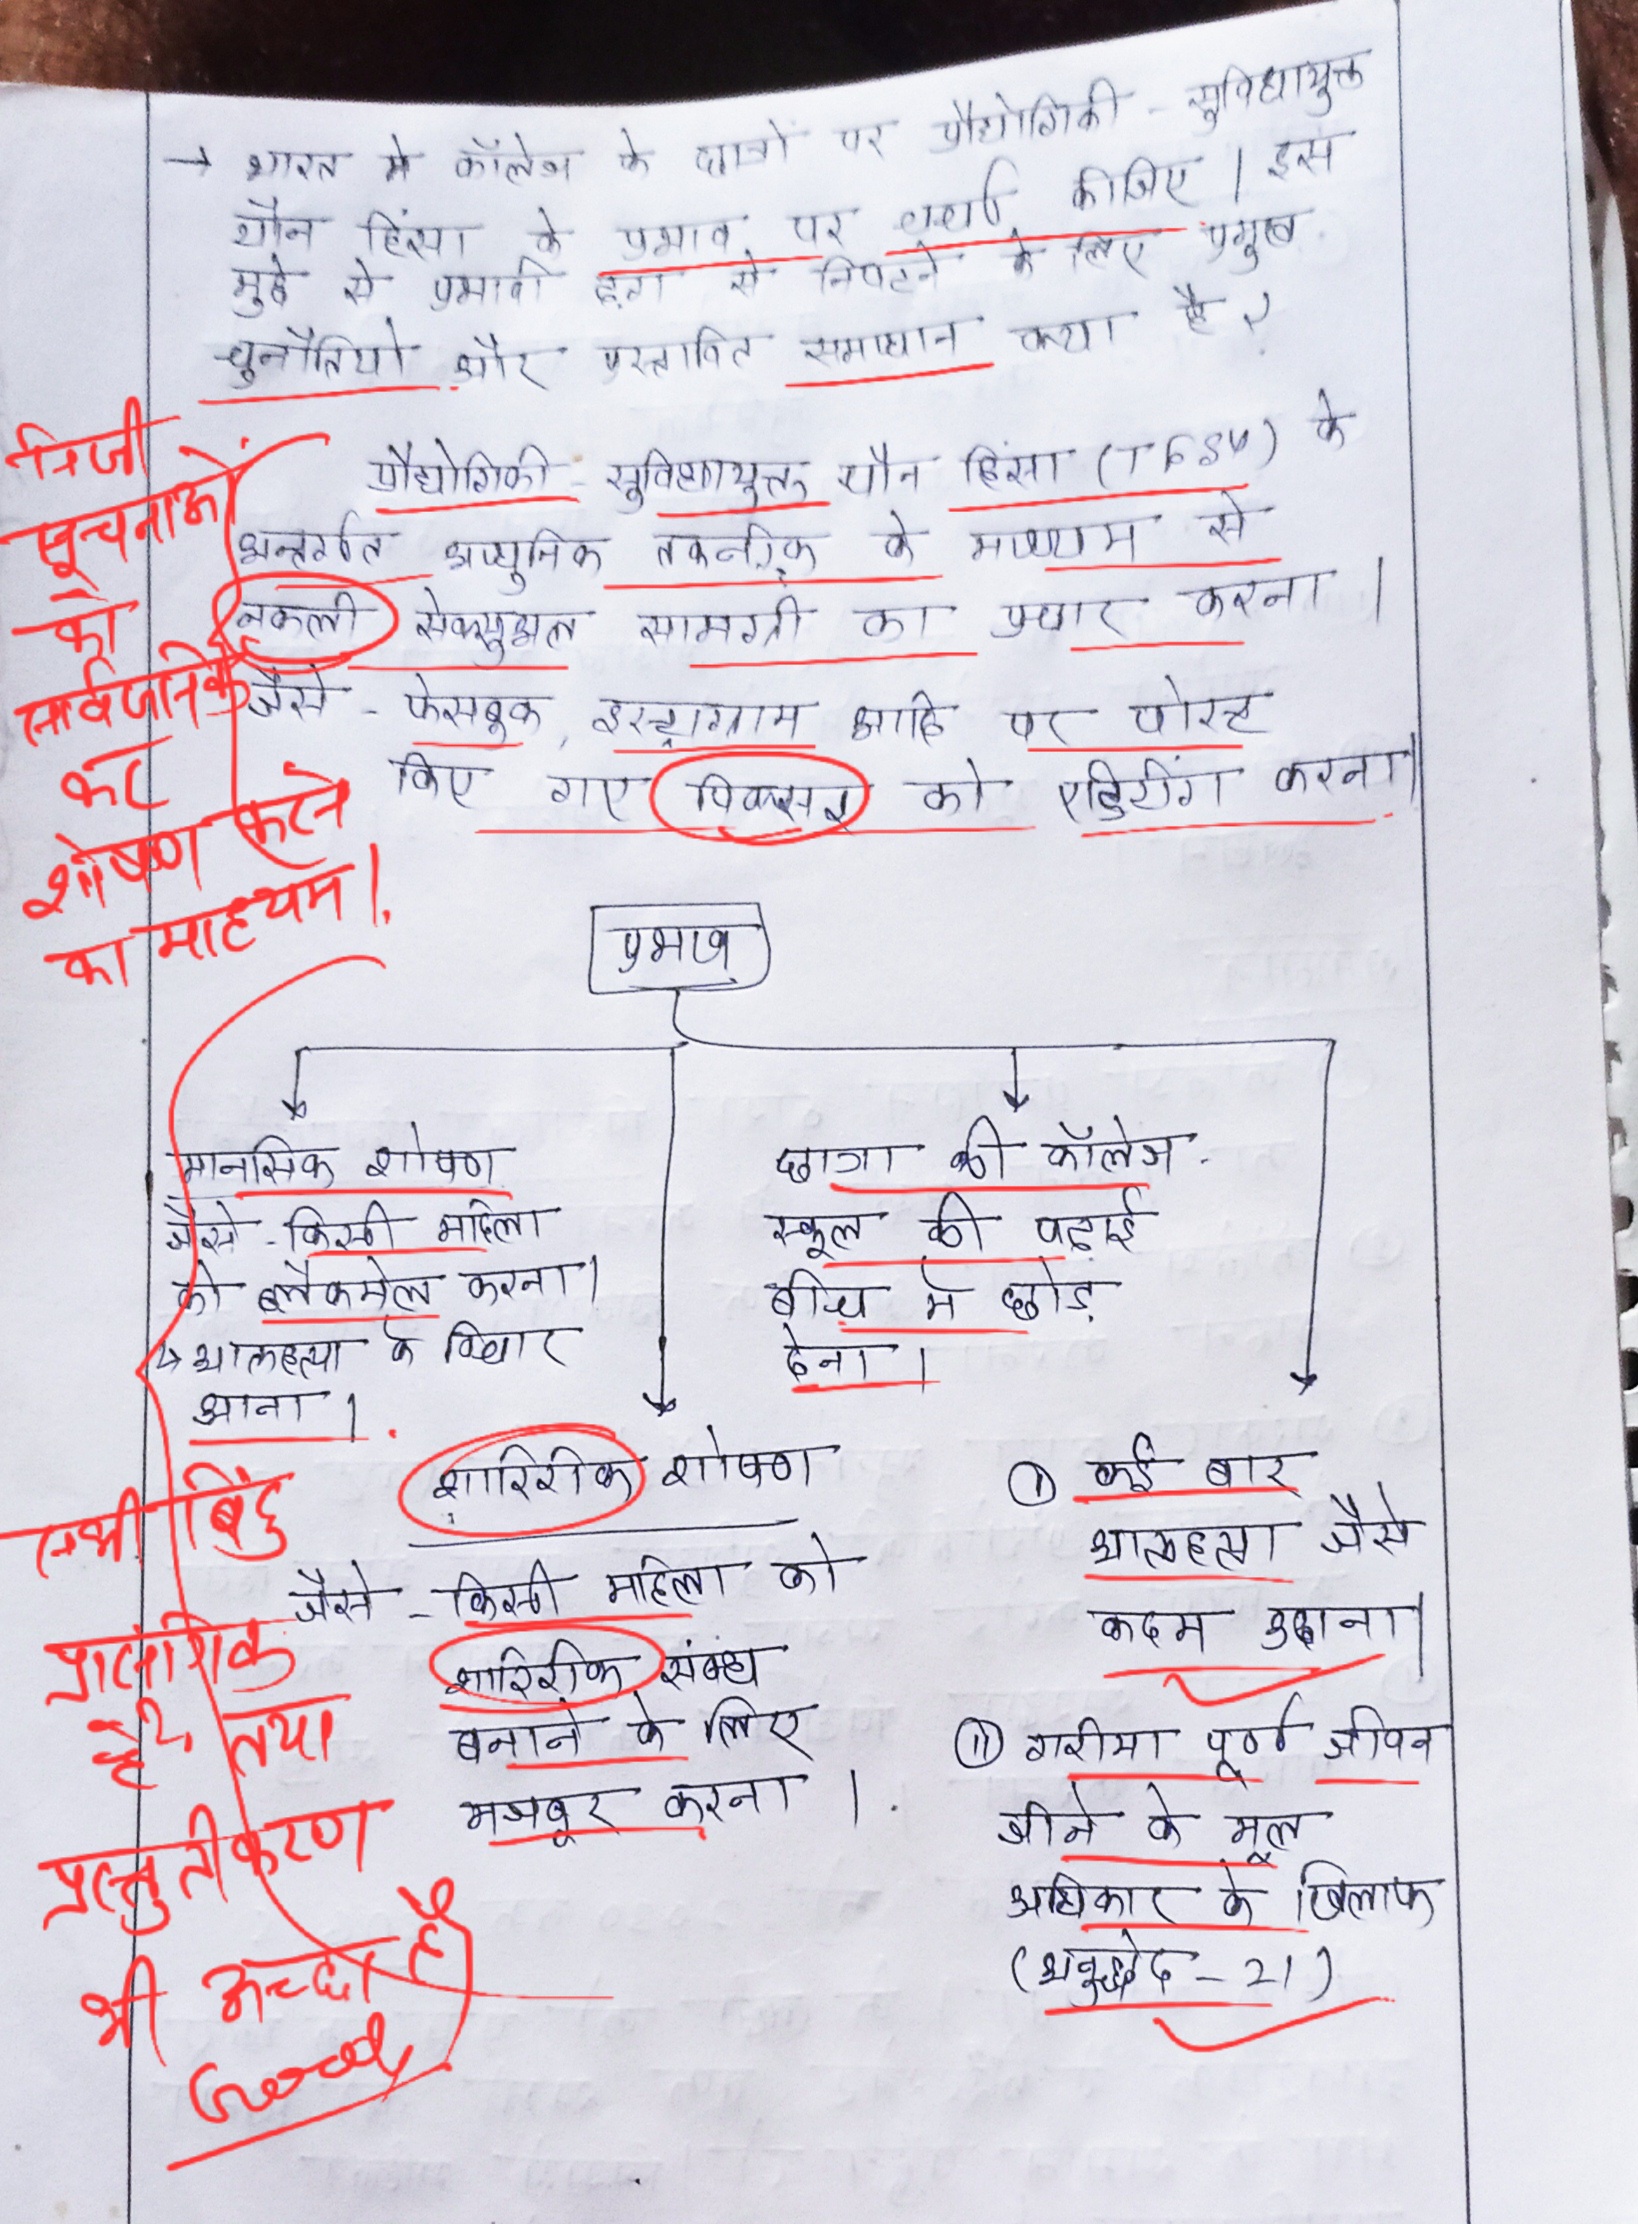 → भारत मे कॉलेज के छात्रों पर प्रौद्योगिकी - सुविधायुक्त
यौन हिंसा के प्रभाव पर चर्चा कीजिए । इस
मुद्दे से प्रभावी ढ़ंग से निपटने के लिए प्रमुख
चुनौतियो और प्रस्तावित समाधान क्या है ?
प्रौद्योगिकी - सुविधायुक्त यौन हिंसा (TFSV) के
अन्तर्गत आधुनिक तकनीक के माध्यम से
नकली सेक्सुअल सामग्री का प्रचार करना ।
जैसे - फेसबुक, इस्ट्राग्राम आदि पर पोस्ट
किए गए पिक्सर को एडिटींग करना।
निजी
सूचनाओं
को
सार्वजनिक
कर
शोषण करने
का माध्यम।
प्रभाव
मानसिक शोषण
जैसे - किसी महिला
को ब्लैकमेल करना।
→ आत्महत्या के विचार
आना ।
छात्रा की कॉलेज -
स्कूल की पढ़ाई
बीच मे छोड़
देना ।
शारिरीक शोषण
जैसे - किसी महिला को
शारिरीक संबंध
बनाने के लिए
मजबूर करना ।
① कई बार
आत्महत्या जैसे
कदम उठाना।
② गरीमा पूर्ण जीवन
जीने के मूल
अधिकार के खिलाफ
(अनुच्छेद - 21)
सभी बिंदु
प्रासंगिक
है, तथा
प्रस्तुतीकरण
भी अच्छा है
Good